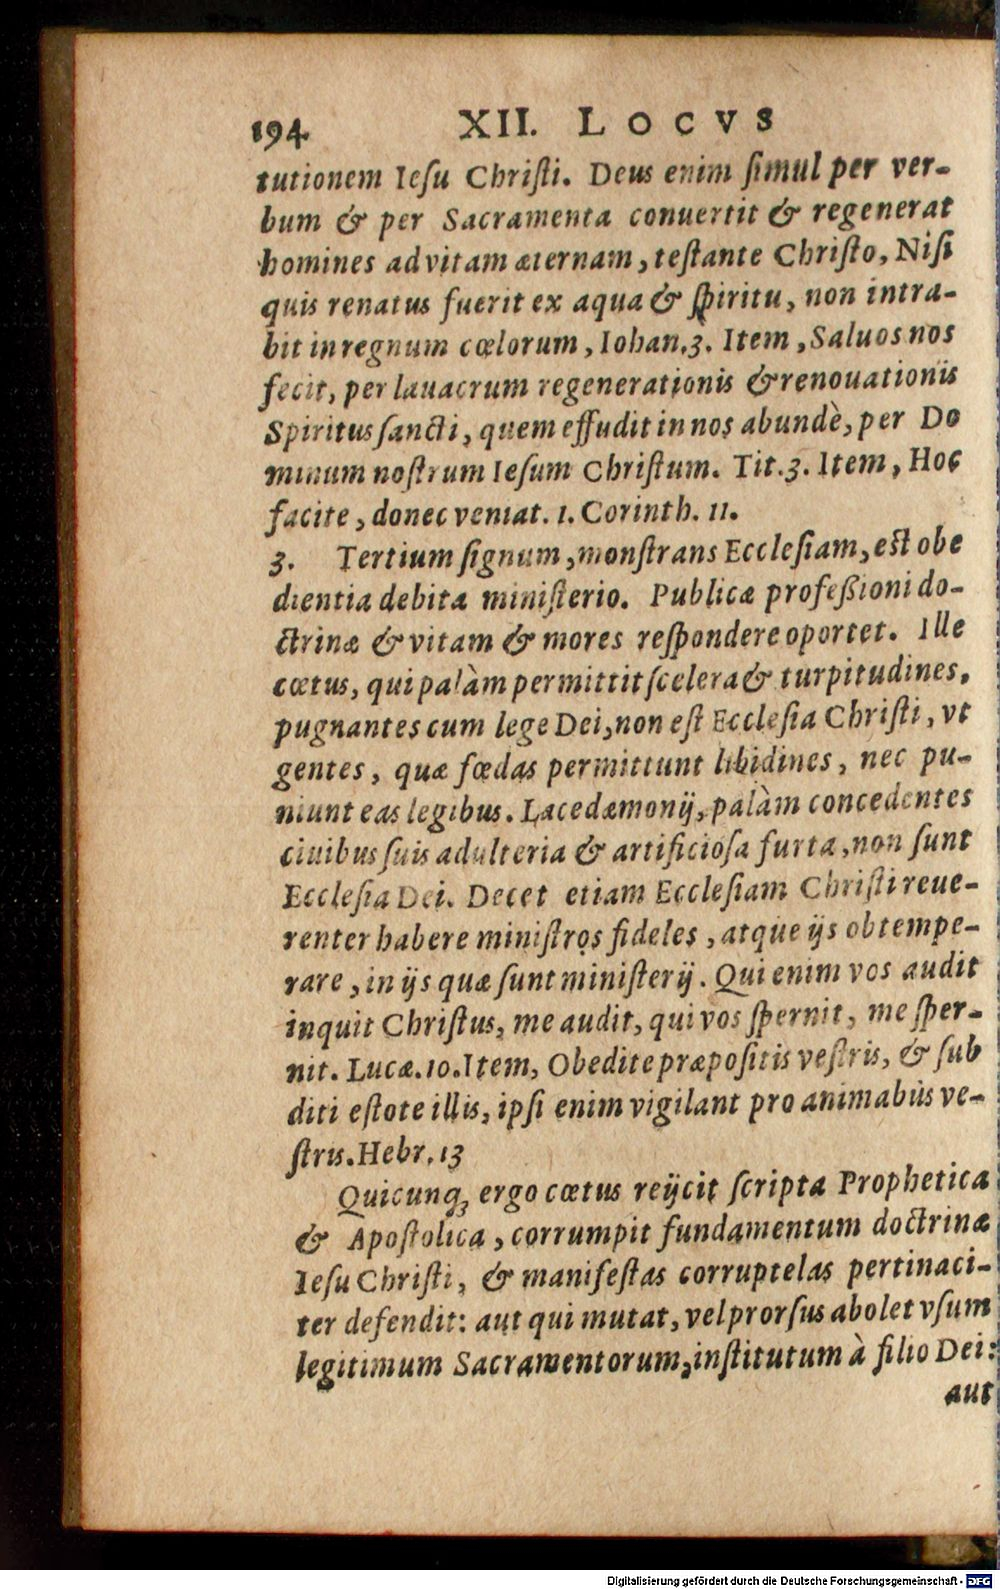 194 XII. LOCVS
tutionem Ieſu Chriſti. Deus enim ſimul per ver-
bum & per Sacramenta conuertit & regenerat
homines ad vitam æternam, teſtante Chriſto, Niſi
quis renatus fuerit ex aqua & ſpiritu, non intra-
bit in regnum cœlorum, Iohan.3. Item, Saluos nos
fecit, per lauacrum regenerationis & renouationis
Spiritus ſancti, quem effudit in nos abundè, per Do
minum noſtrum Ieſum Chriſtum. Tit.3. Item, Hoc
facite, donec veniat. 1. Corinth. 11.
3. Tertium ſignum, monſtrans Eccleſiam, eſt obe
dientia debita miniſterio. Publicæ profeßioni do-
ctrinæ & vitam & mores reſpondere oportet. Ille
cœtus, qui palàm permittit ſcelera & turpitudines,
pugnantes cum lege Dei, non eſt Eccleſia Chriſti, vt
gentes, quæ fœdas permittunt libidines, nec pu-
niunt eas legibus. Lacedæmonij, palàm concedentes
ciuibus ſuis adulteria & artificioſa furta, non ſunt
Eccleſia Dei. Decet etiam Eccleſiam Chriſti reue-
renter habere miniſtros fideles, atque ijs obtempe-
rare, in ijs quæ ſunt miniſterij. Qui enim vos audit
inquit Chriſtus, me audit, qui vos ſpernit, me ſper-
nit. Lucæ.10. Item, Obedite præpoſitis veſtris, & ſub
diti eſtote illis, ipſi enim vigilant pro animabus ve-
ſtris. Hebr. 13
Quicunq; ergo cœtus reijcit ſcripta Prophetica
& Apoſtolica, corrumpit fundamentum doctrinæ
Ieſu Chriſti, & manifeſtas corruptelas pertinaci-
ter defendit: aut qui mutat, vel prorſus abolet vſum
legitimum Sacramentorum, inſtitutum à filio Dei:
aut
Digitalisierung gefördert durch die Deutsche Forschungsgemeinschaft - DFG